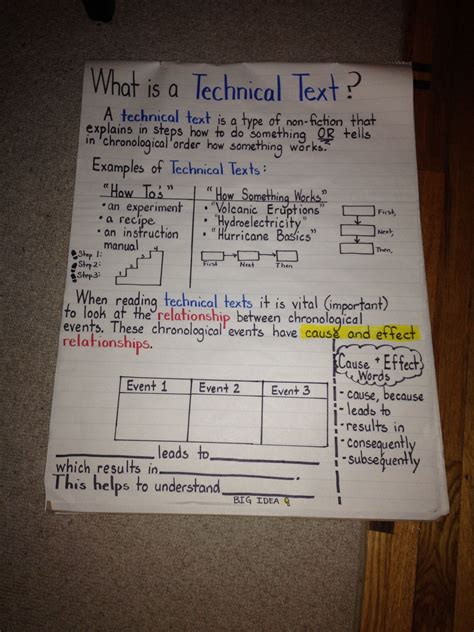 What is a Technical Text?
A technical text is a type of non-fiction that
explains in steps how to do something OR tells
in chronological order how something works.
Examples of Technical Texts:
"How To's"
• an experiment
• a recipe
• an instruction
manual
Step 1:
Step 2:
Step 3:
"How Something Works"
• "Volcanic Eruptions"
• "Hydroelectricity"
• "Hurricane Basics"
First Next Then
First,
Next,
Then,
When reading technical texts it is vital (important)
to look at the relationship between chronological
events. These chronological events have cause and effect
relationships.
Event 1 Event 2 Event 3
leads to
which results in
This helps to understand
BIG IDEA
Cause + Effect
Words
- cause, because
- leads to
- results in
- consequently
- subsequently